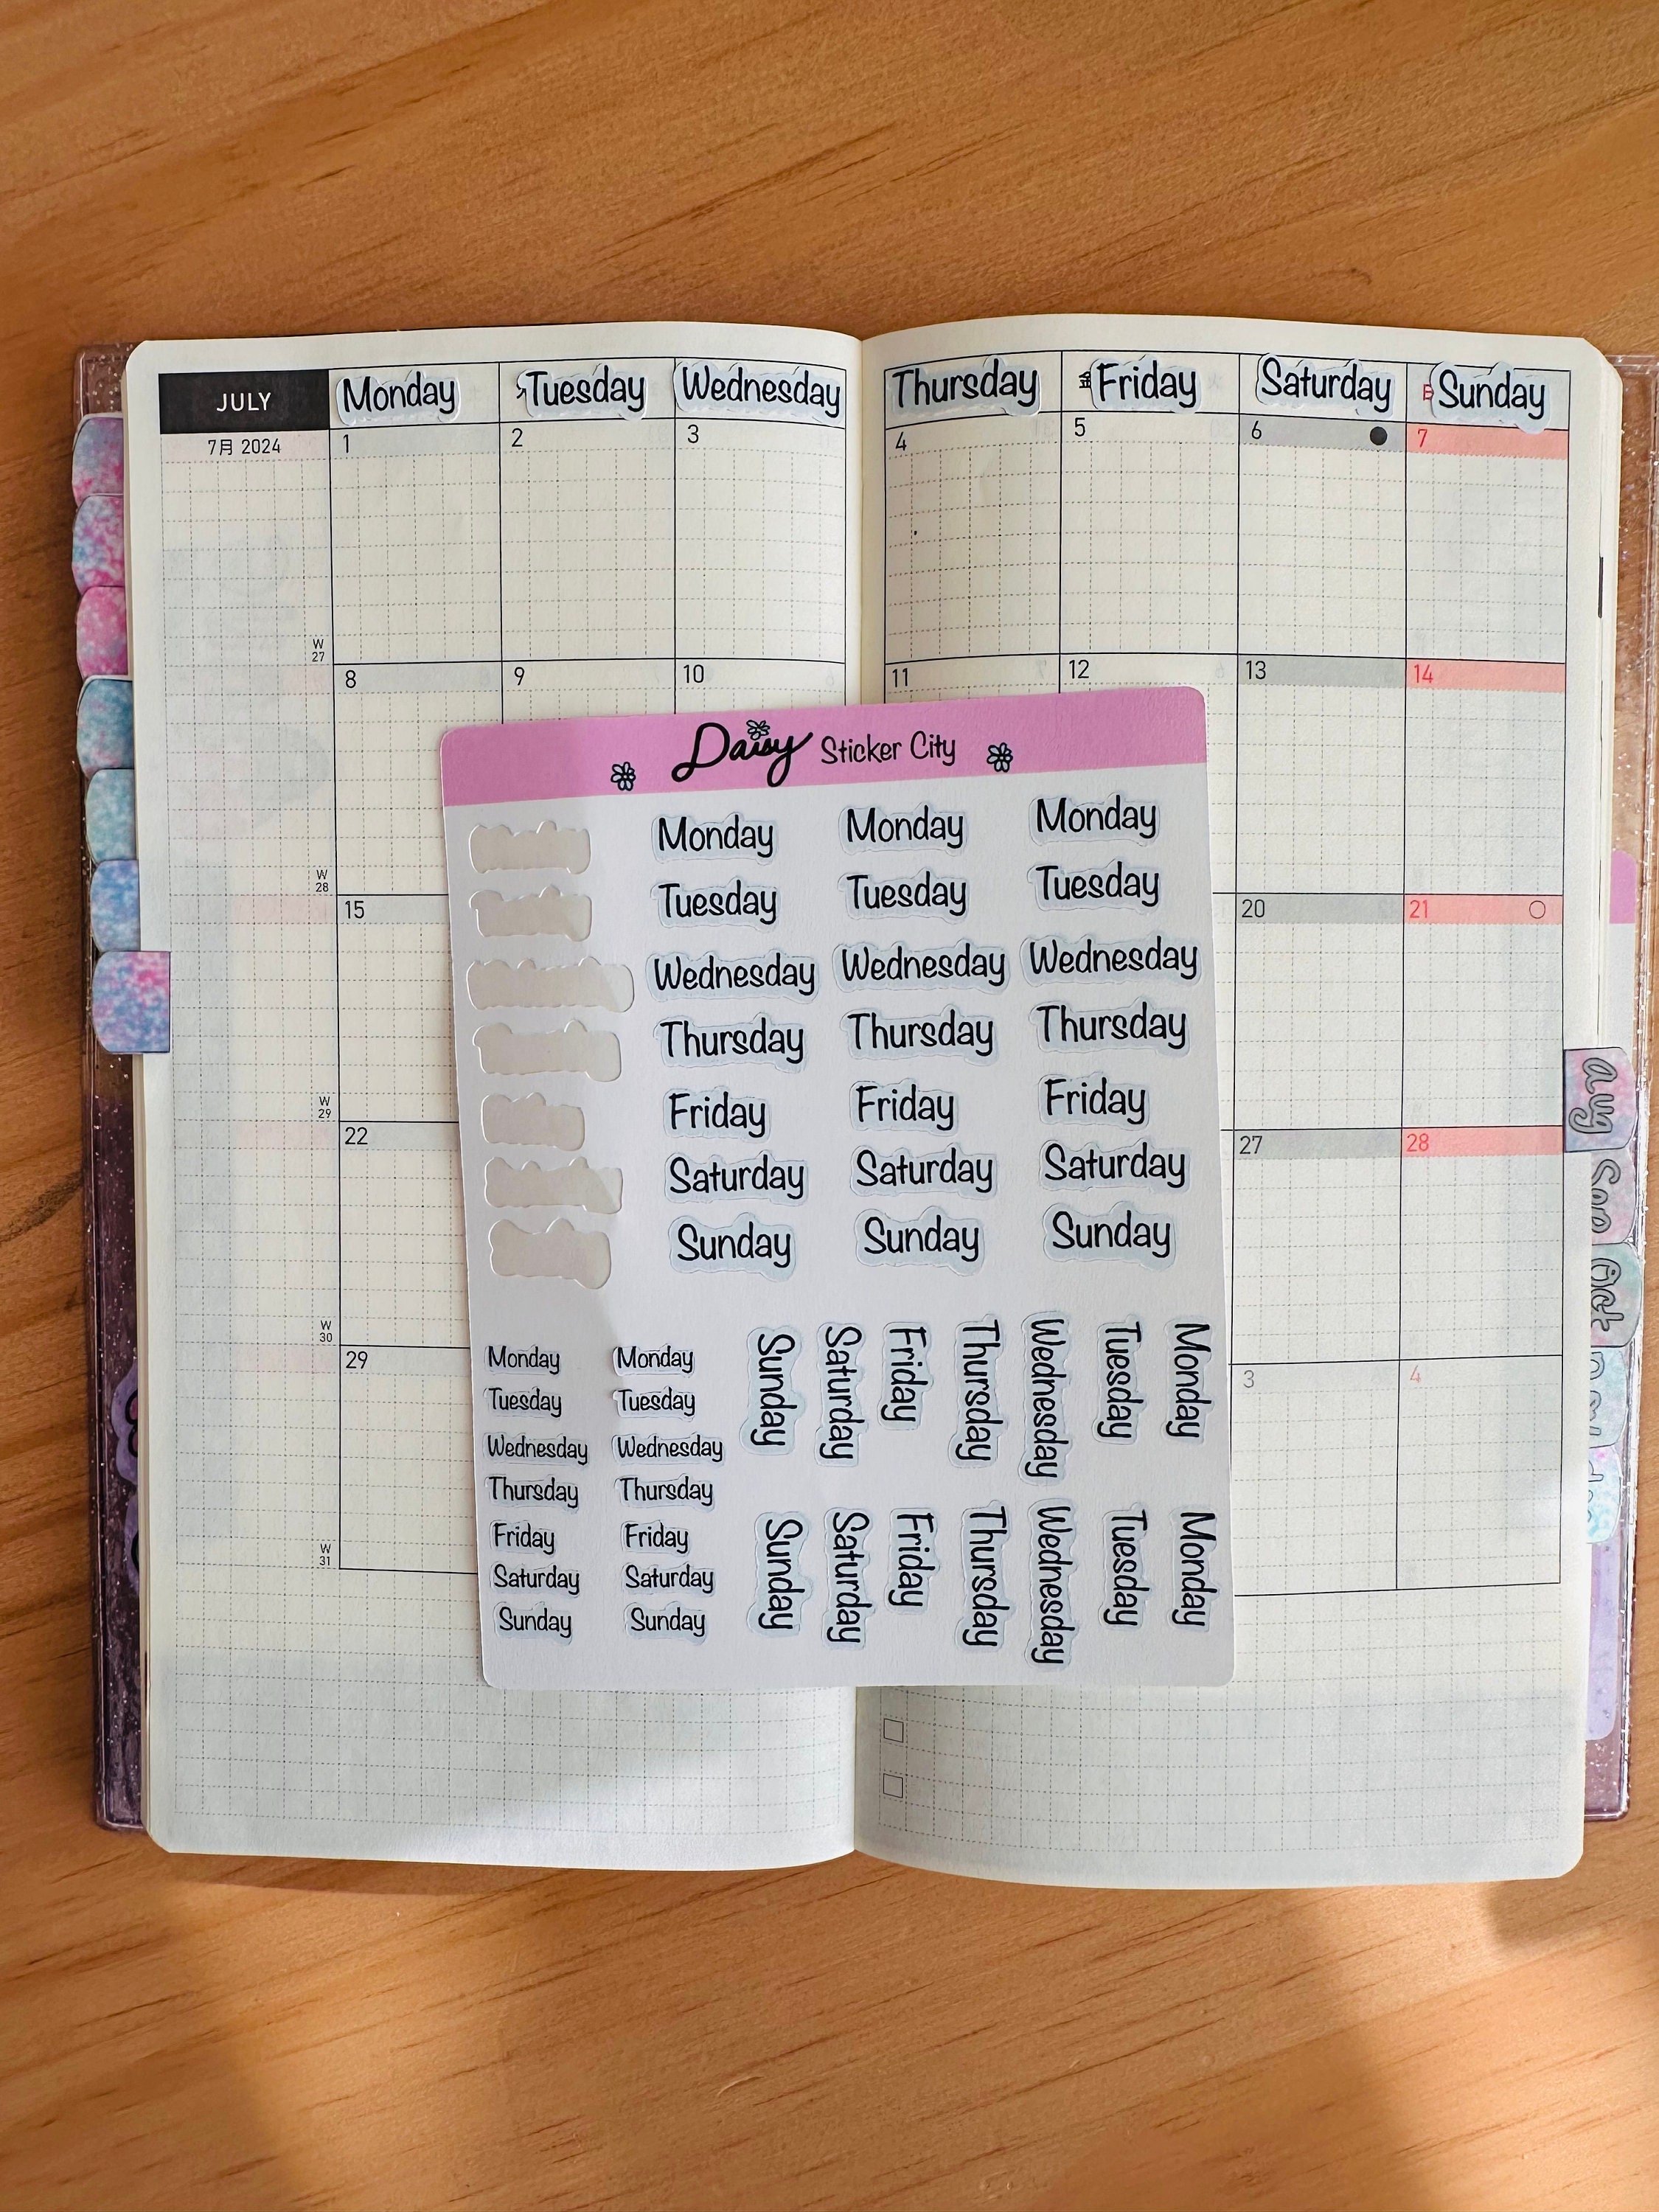 JULY Monday Tuesday Wednesday Thursday 金 Friday Saturday Sunday
7月 2024 1 2 3 4 5 6 7
W
27
8 9 10 11 12 13 14
Daisy Sticker City
W
28
15 20 21
W
29
22 27 28
W
30
29 3 4
W
31
Monday Monday Monday
Tuesday Tuesday Tuesday
Wednesday Wednesday Wednesday
Thursday Thursday Thursday
Friday Friday Friday
Saturday Saturday Saturday
Sunday Sunday Sunday
Monday Monday
Tuesday Tuesday
Wednesday Wednesday
Thursday Thursday
Friday Friday
Saturday Saturday
Sunday Sunday
Monday
Tuesday
Wednesday
Thursday
Friday
Saturday
Sunday
Monday
Tuesday
Wednesday
Thursday
Friday
Saturday
Sunday
Aug
Sep
Oct